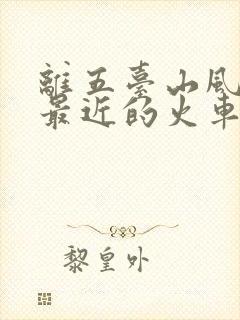 離五臺山風
最近的火車
黎皇外